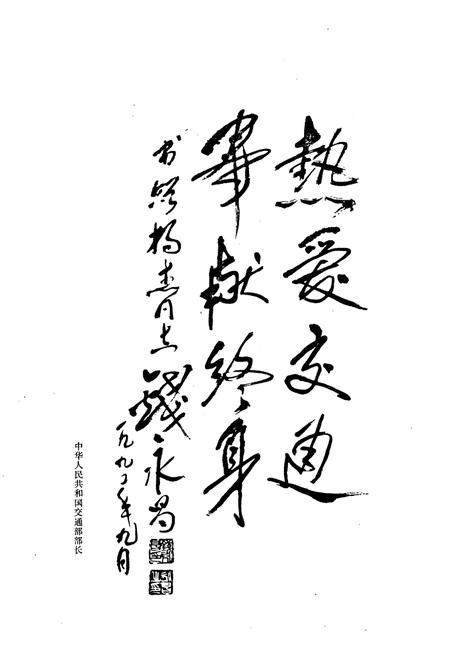 熱爱交通
奉献终身
书赠杨杰同志
錢永昌
一九九〇年九月
中华人民共和国交通部部长